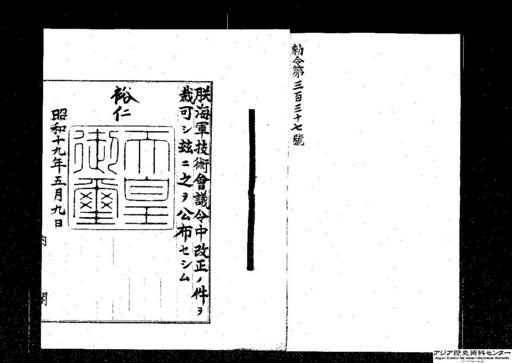 勅令第三百三十七號
朕海軍技術會議令中改正ノ件ヲ
裁可シ玆ニ之ヲ公布セシム
裕仁
天皇御璽
昭和十九年五月九日
内閣
アジア歴史資料センター
Japan Center for Asian Historical Records